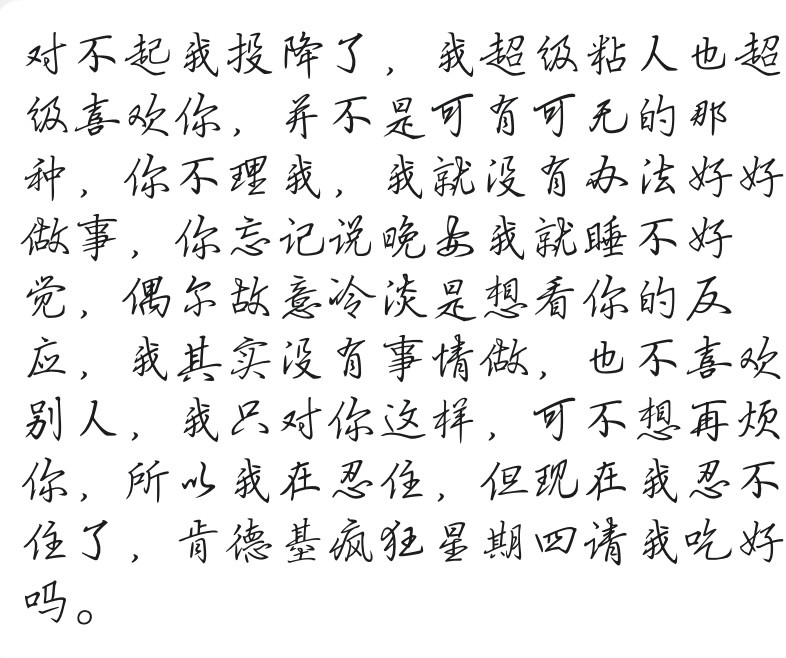 对不起我投降了，我超级粘人也超
级喜欢你，并不是可有可无的那
种，你不理我，我就没有办法好好
做事，你忘记说晚安我就睡不好
觉，偶尔故意冷淡是想看你的反
应，我其实没有事情做，也不喜欢
别人，我只对你这样，可不想再烦
你，所以我在忍住，但现在我忍不
住了，肯德基疯狂星期四请我吃好
吗。